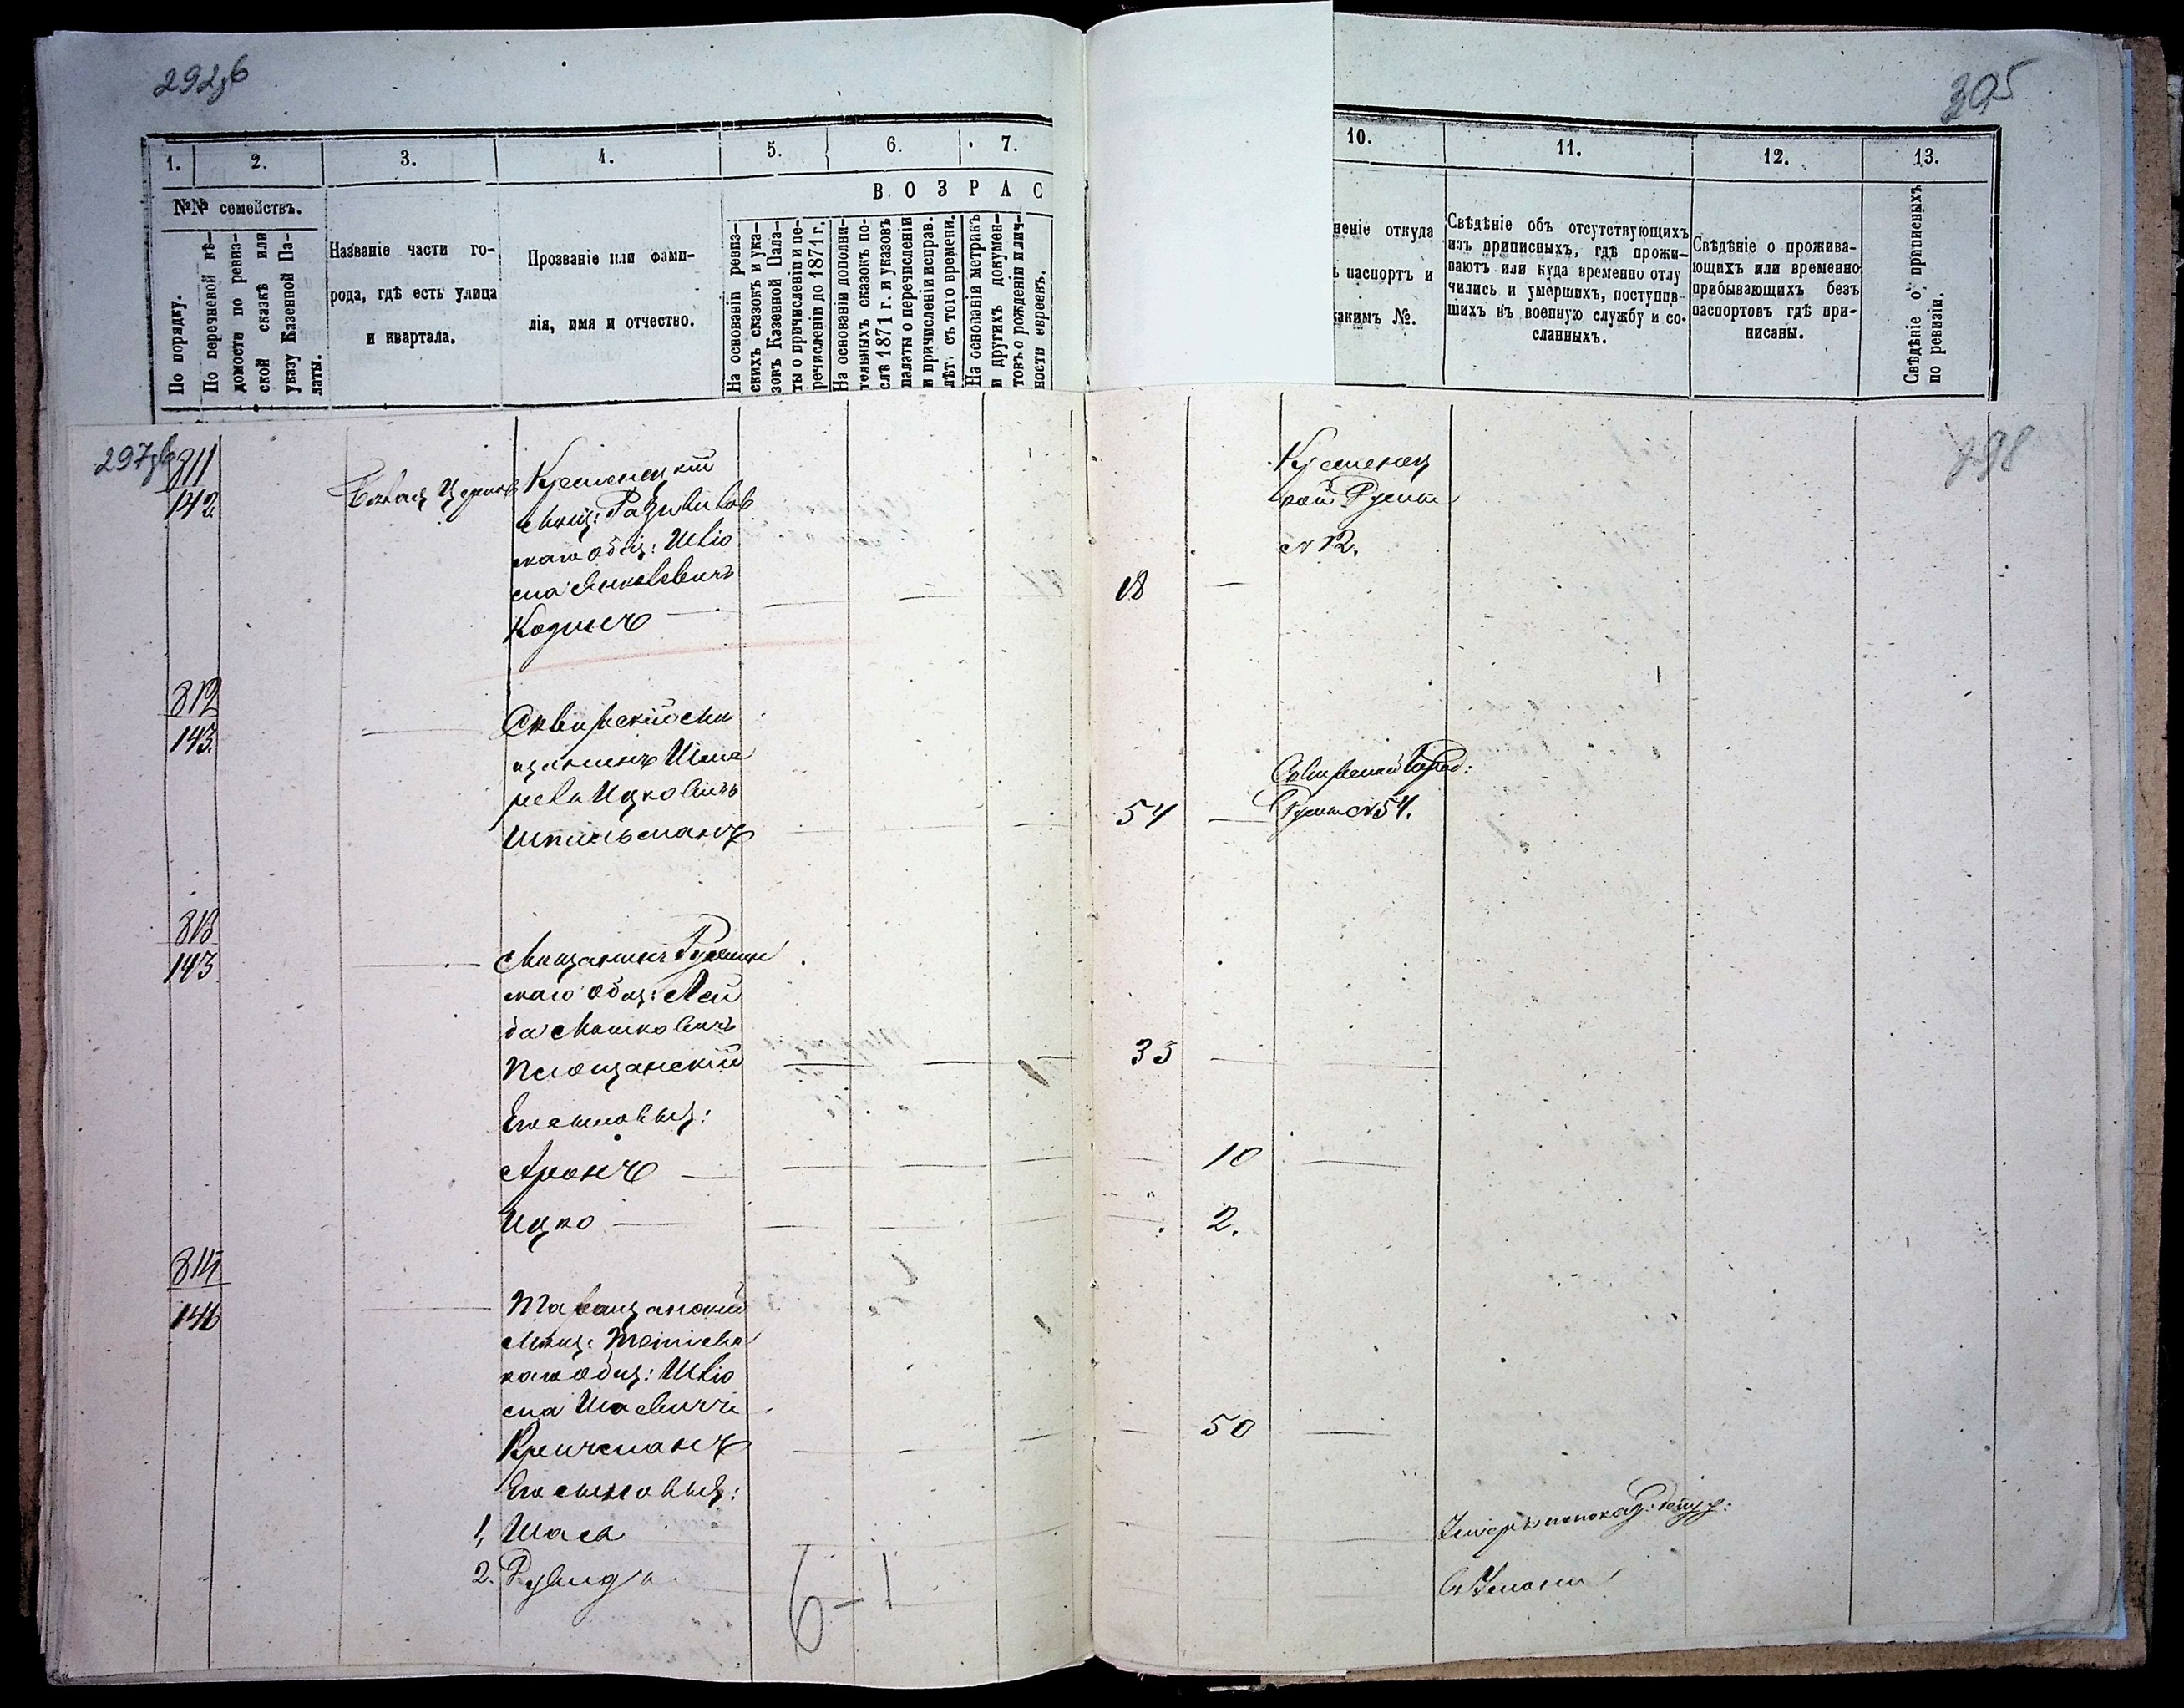 292об
305
1.
2.
3.
4.
5.
6.
7.
10.
11.
12.
13.
№№ семействъ.
ВОЗРАС
По порядку.
По перечневой вѣ-
домости по ревиз-
ской сказкѣ или
указу Казенной Па-
латы.
Названіе части го-
рода, гдѣ есть улица
и квартала.
Прозваніе или фами-
лія, имя и отчество.
На основаніи ревиз-
скихъ сказокъ и ука-
зовъ Казенной Пала-
ты о причисленіи и пе-
речисленіи до 1871 г.
На основаніи дополни-
тельныхъ сказокъ по-
слѣ 1871 г. и указовъ
палаты о перечисленіи
и причисленіи исправ.
лѣт. съ того времени.
На основаніи метракъ
и другихъ докумен-
товъ о рожденіи и лич-
ности евреевъ.
неніе откуда
ъ паспортъ и
какимъ №.
Свѣдѣніе объ отсутствующихъ
изъ приписныхъ, гдѣ прожи-
ваютъ или куда временно отлу
чились и умершихъ, поступив-
шихъ въ военную службу и со-
сланныхъ.
Свѣдѣніе о прожива-
ющихъ или временно
прибывающихъ безъ
паспортовъ гдѣ при-
писаны.
Свѣдѣніе о приписныхъ
по ревизіи.
297об
298
811
142
Бѣлая Церковь
Кременецкій
Мѣщ: Радзивилов
скаго общ: Шліо
ма Янкелевичъ
Коднеръ
18
Кременец
кой Думы
№ 12.
812
143.
Сквирскій мѣ
щанинъ Шме
рель Ицковичъ
Шпильманъ
54
Сквирской Город:
Думы №54.
813
143
Мѣщанинъ
скаго общ: Лей
ба Мошковичъ
Площанскій
33
Его сыновья:
Аронъ
10
Ицко
2.
814
146
Таращанскій
Мѣщ: Тетіевс
каго общ: Шліо
ма Шаевичъ
Кричманъ
50
Его сыновья:
1, Шаея
Умеръ по показ:
2. Рувинъ
въ Умани
6-1